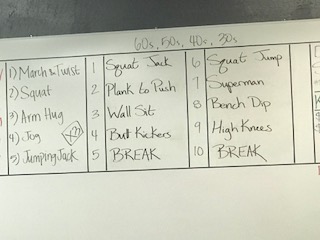 60s, 50s, 40s, 30s
1) March & Twist
2) Squat
3) Arm Hug
4) Jog
5) Jumping Jack
x2
1 Squat Jack
2 Plank to Push
3 Wall Sit
4 Butt Kickers
5 BREAK
6 Squat Jump
7 Superman
8 Bench Dip
9 High Knees
10 BREAK